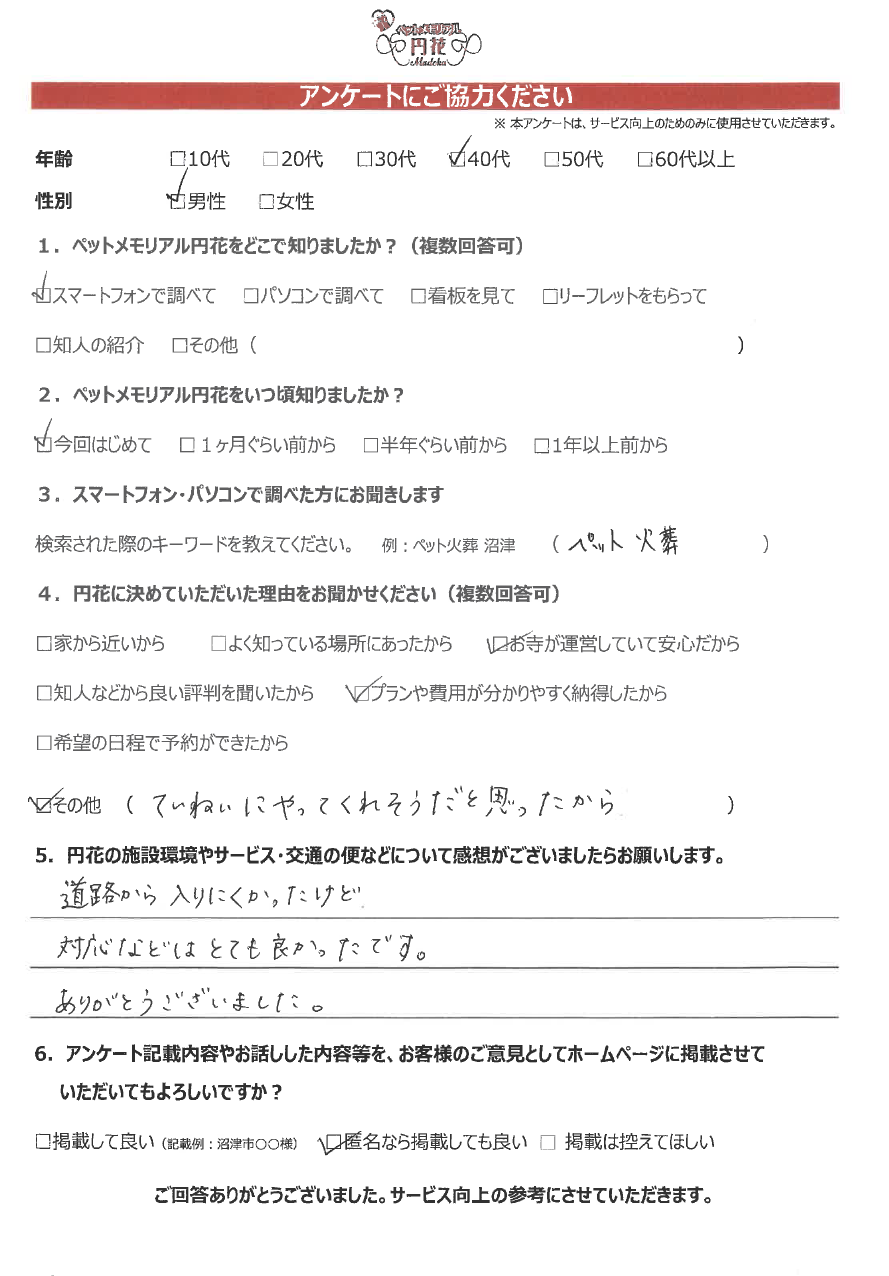 ペットメモリアル
円花
Madoka
アンケートにご協力ください
※ 本アンケートは、サービス向上のためのみに使用させていただきます。
年齢 □10代 □20代 □30代 ☑40代 □50代 □60代以上
性別 ☑男性 □女性
1．ペットメモリアル円花をどこで知りましたか？（複数回答可）
☑スマートフォンで調べて □パソコンで調べて □看板を見て □リーフレットをもらって
□知人の紹介 □その他（ ）
2．ペットメモリアル円花をいつ頃知りましたか？
☑今回はじめて □1ヶ月ぐらい前から □半年ぐらい前から □1年以上前から
3．スマートフォン・パソコンで調べた方にお聞きします
検索された際のキーワードを教えてください。 例：ペット火葬 沼津 （ペット 火葬）
4．円花に決めていただいた理由をお聞かせください（複数回答可）
□家から近いから □よく知っている場所にあったから ☑お寺が運営していて安心だから
□知人などから良い評判を聞いたから ☑プランや費用が分かりやすく納得したから
□希望の日程で予約ができたから
☑その他（ていねいにやってくれそうだと思ったから）
5．円花の施設環境やサービス・交通の便などについて感想がございましたらお願いします。
道路から入りにくかったけど
対応などはとても良かったです。
ありがとうございました。
6．アンケート記載内容やお話しした内容等を、お客様のご意見としてホームページに掲載させて
いただいてもよろしいですか？
□掲載して良い（記載例：沼津市〇〇様） ☑匿名なら掲載しても良い □ 掲載は控えてほしい
ご回答ありがとうございました。サービス向上の参考にさせていただきます。